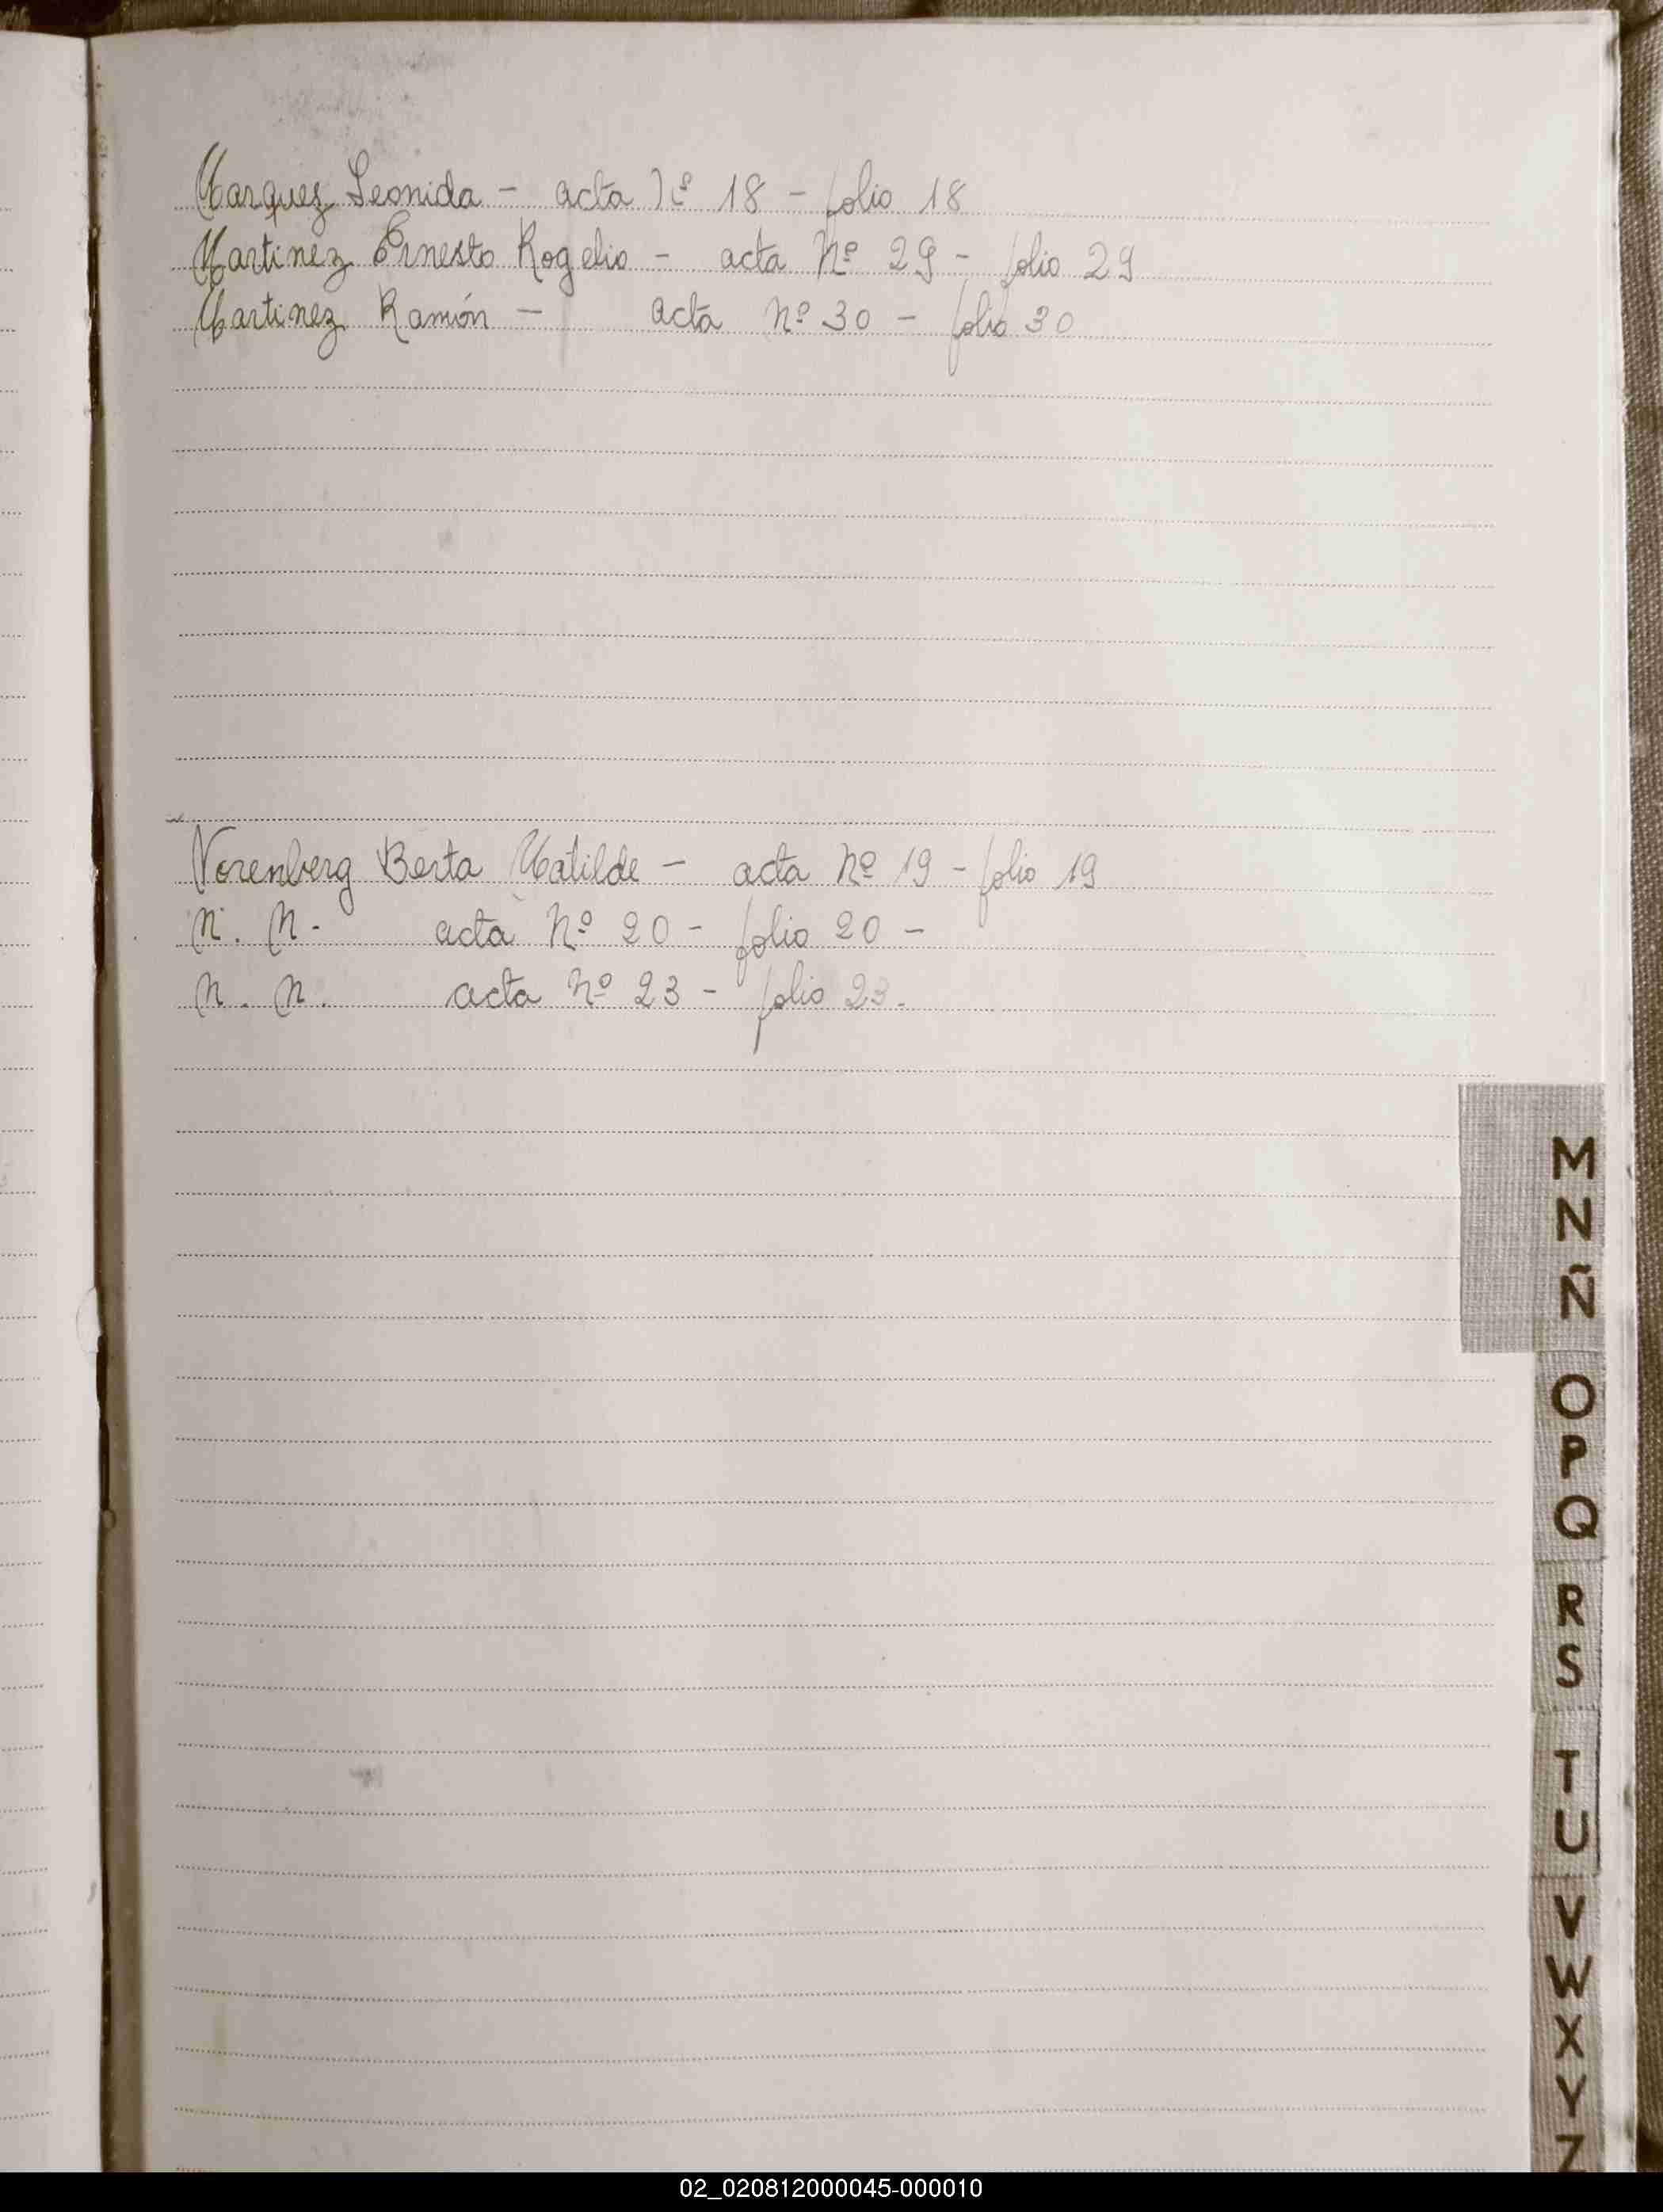 Marquez Leonida - acta Nº 18 - folio 18
Martinez Ernesto Rogelio - acta Nº 29 - folio 29
Martinez Ramón - acta nº 30 - folio 30
Norenberg Berta Matilde - acta Nº 19 - folio 19
N. N. - acta Nº 20 - folio 20 -
N. N. acta Nº 23 - folio 23.
M
N
Ñ
O
P
Q
R
S
T
U
V
W
X
Y
Z
02_020812000045-000010